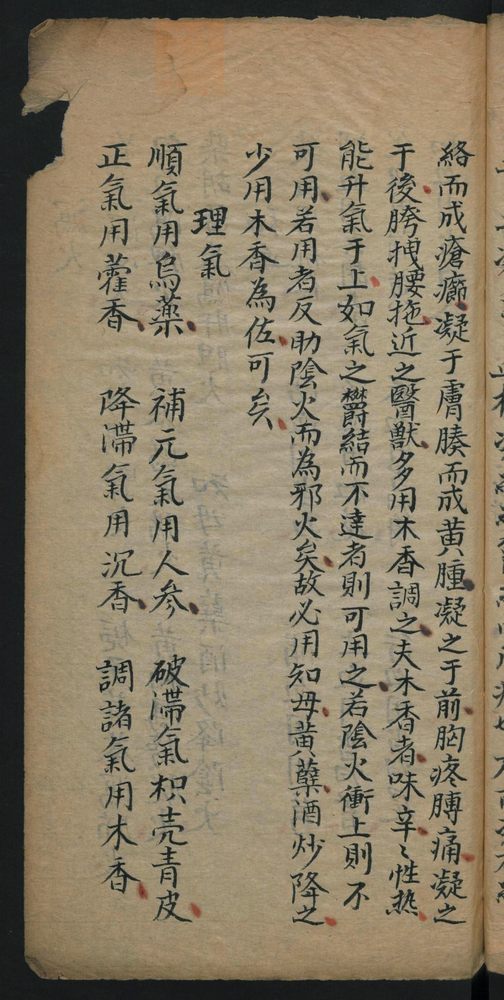 絡而成瘡癤凝于膚腠而成黃腫凝之于前胸疼膊痛凝之
于後胯拽腰拖近之醫獸多用木香調之夫木香者味辛〻性热
能升氣于上如氣之欝結而不達者則可用之若陰火衝上則不
可用若用者反助陰火而為邪火矣故必用知毋黃蘗酒炒降之
少用木香為佐可矣
理氣
順氣用烏藥 補元氣用人参 破滯氣枳壳青皮
正氣用藿香 降滯氣用沉香 調諸氣用木香